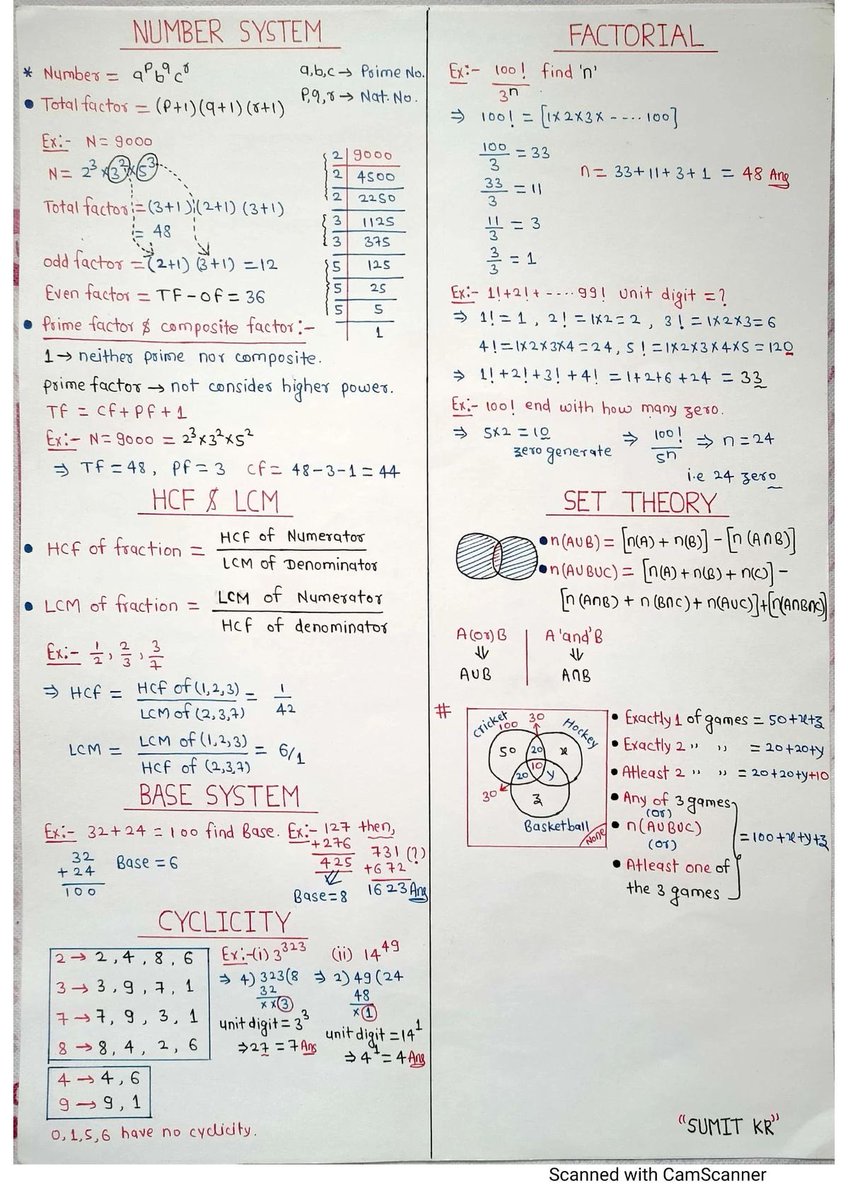 NUMBER SYSTEM
* Number = a^p b^q c^r
a,b,c → Prime No.
P,q,r → Nat. No.
• Total factor = (P+1)(q+1)(r+1)
Ex:- N = 9000
N = 2³ × 3² × 5³
Total factor = (3+1) (2+1) (3+1)
= 48
odd factor = (2+1) (3+1) = 12
Even factor = TF - OF = 36
2 | 9000
2 | 4500
2 | 2250
3 | 1125
3 | 375
5 | 125
5 | 25
5 | 5
1
• Prime factor & composite factor:-
1 → neither prime nor composite.
prime factor → not consider higher power.
Tf = Cf + Pf + 1
Ex:- N = 9000 = 2³×3²×5²
⇒ Tf = 48, Pf = 3 Cf = 48-3-1 = 44
HCF & LCM
• HCF of fraction = HCF of Numerator / LCM of Denominator
• LCM of fraction = LCM of Numerator / HCf of denominator
Ex:- 1/2, 2/3, 3/7
⇒ HCf = HCf of (1,2,3) / LCM of (2,3,7) = 1/42
LCM = LCM of (1,2,3) / HCf of (2,3,7) = 6/1
BASE SYSTEM
Ex:- 32+24 = 100 find Base.
32
+ 24
100
Base = 6
Ex:- 127 then,
+276
425
Base=8
731 (?)
+672
1623 Ans
CYCLICITY
2 → 2, 4, 8, 6
3 → 3, 9, 7, 1
7 → 7, 9, 3, 1
8 → 8, 4, 2, 6
4 → 4, 6
9 → 9, 1
0,1,5,6 have no cyclicity.
Ex:-(i) 3^323
⇒ 4) 323 (8
32
××3
unit digit = 3³
⇒ 27 = 7 Ans
(ii) 14^49
⇒ 2) 49 (24
48
×1
unit digit = 14¹
⇒ 4¹ = 4 Ans
FACTORIAL
Ex:- 100! / 3^n find 'n'
⇒ 100! = [1×2×3×----100]
100/3 = 33
33/3 = 11
11/3 = 3
3/3 = 1
n = 33+11+3+1 = 48 Ans
Ex:- 1!+2!+----99! unit digit = ?
⇒ 1! = 1, 2! = 1×2 = 2, 3! = 1×2×3 = 6
4! = 1×2×3×4 = 24, 5! = 1×2×3×4×5 = 120
⇒ 1!+2!+3!+4! = 1+2+6+24 = 33
Ex:- 100! end with how many zero.
⇒ 5×2 = 10 ⇒ 100!/5^n ⇒ n = 24
zero generate
i.e 24 zero
SET THEORY
• n(AUB) = [n(A) + n(B)] - [n(A∩B)]
• n(AUBUC) = [n(A) + n(B) + n(C)] -
[n(A∩B) + n(B∩C) + n(AUC)] + [n(A∩B∩C)]
A(or)B
⇓
AUB
A 'and' B
⇓
A∩B
#
Cricket
100
30
Hockey
50
20
x
10
20
y
30
z
Basketball
None
• Exactly 1 of games = 50+x+z
• Exactly 2 " " = 20+20+y
• Atleast 2 " " = 20+20+y+10
• Any of 3 games
(or)
• n(AUBUC)
(or)
• Atleast one of
the 3 games
= 100+x+y+z
"SUMIT KR"
Scanned with CamScanner